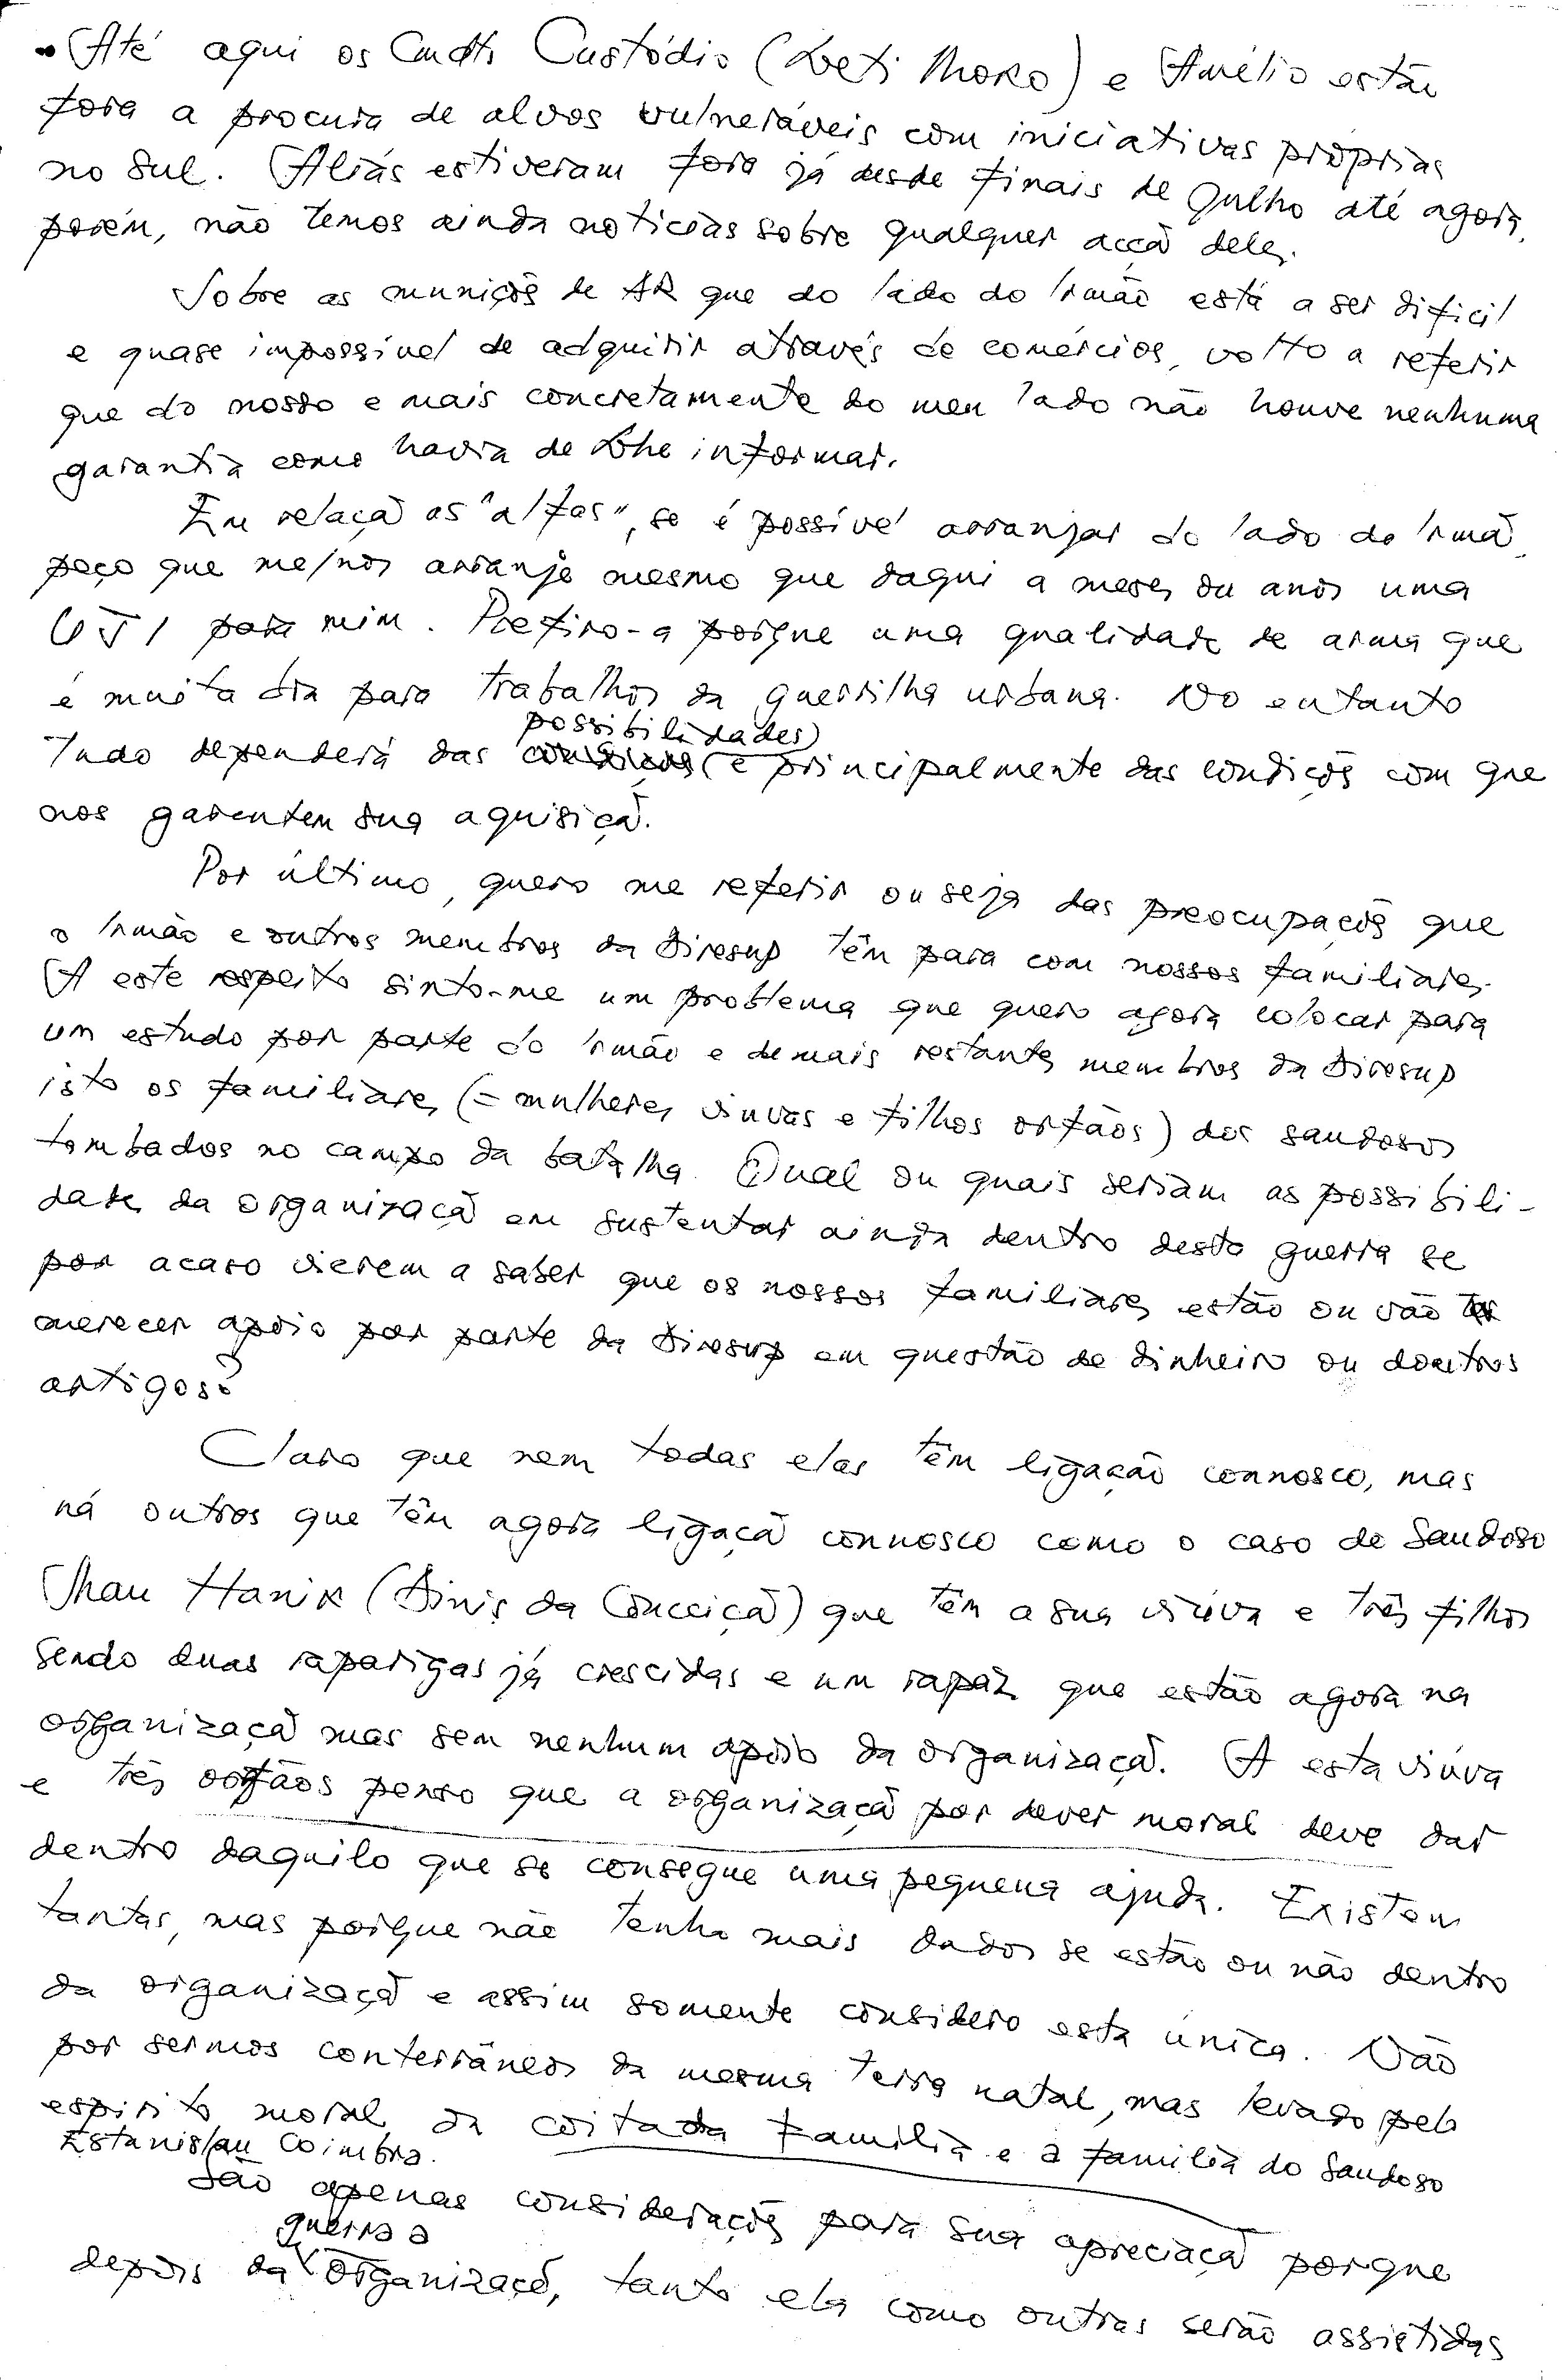 Até aqui os Cmdts Custódio (Leti Moko) e Aurélio estão
fora a procura de alvos vulneráveis com iniciativas próprias
no sul. Aliás estiveram fora já desde finais de Julho até agora,
porém, não temos ainda notícias sobre qualquer acçã deles.
Sobre as muniçõs de AR que do lado do Irmão está a ser difícil
e quase impossível de adquirir através de comércios, volto a referir
que do nosso e mais concretamente do meu lado não houve nenhuma
garantia como havia de Lhe informar.
Em relaçã os "alfas", se é possível arranjar do lado do Irmã,
peço que me/nos arranje mesmo que daqui a meses ou anos uma
para mim. Prefiro-a porque uma qualidade de arma que
é muita boa para trabalhos da guerrilha urbana. No entanto
possibilidades)
Tudo dependerá das (e principalmente das condiçõs com que
nos garentem sua aquisiçã.
Por último, quero me referir ou seja das preocupaçõs que
o Irmão e outros membros da Diresup têm para com nossos familiares.
A este respeito sinto-me um problema que quero agora colocar para
um estudo por parte do Irmão e demais restantes membros da Diresup
isto os familiares (= mulheres viuvas e filhos orfãos) dos saudosos
tombados no campo da batalha. Qual ou quais seriam as possibili-
dades da organizaçã em sustentar ainda dentro desta guerra se
por acaso vierem a saber que os nossos familiares estão ou vão
merecer apoio por parte da Diresup em questão de dinheiro ou doutros
artigos?
Claro que nem todas elas têm ligação connosco, mas
há outros que têm agora ligaçã connosco como o caso de Saudoso
Mau Hanik (Dinis da Conceiçã) que têm a sua viúva e três filhos
sendo duas raparigas já crescidas e um rapaz que estão agora na
organizaçã mas sem nenhum apoio da organizaçã. A esta viúva
e três orfãos penso que a organizaçã por dever moral deve dar
dentro daquilo que se consegue uma pequena ajuda. Existem
tantas, mas porque não tenho mais dados se estão ou não dentro
da organizaçã e assim somente considero esta única. Não
por sermos conterrâneos da mesma terra natal, mas levado pelo
espirito moral da coitada família e a família do Saudoso
Estanislau Coimbra.
São apenas consideraçõs para sua apreciaçã porque
guerra a
depois da organizaçõ, tanto ela como outras serão assistidas